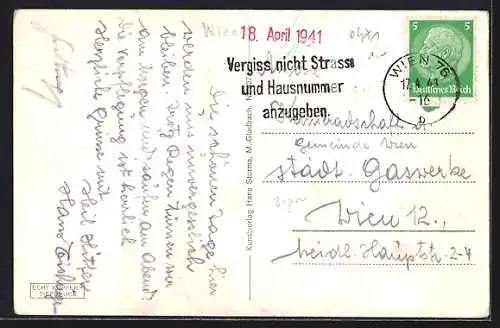 Wien
18. April 1941
Vergiss nicht Strasse
und Hausnummer
anzugeben.
5 5
Deutsches Reich
WIEN 76
17.4.41
-16
b
Gemeinde Wien
städt. Gaswerke
Wien 12.,
Heidl. Hauptstr. 2-4
Die schönen Tage hier
werden uns unvergesslich
bleiben. Trotz Regen können wir
am Abend
die Verpflegung ist herrlich
Herzliche Grüsse mit
Heil Hitler
Hans
Kunstverlag Hans Storms, M.-Gladbach
ECHT KUPFER-
TIEFDRUCK